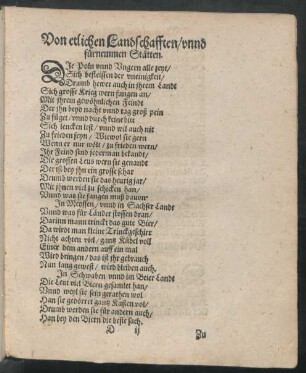 Von etlichen Landschafften/vnnd
fürnemmen Stätten.
DIe Poln vnnd Vngern alle zeyt/
Sich befleissen der vneinigkeit/
Drumb hewer auch in jhrem Landt
Sich grosse Krieg wern fangen an/
Mit jhrem gewöhnlichen Feindt
Der jhn beyd nacht vnnd tag groß pein
Zu füget/vnnd durch keine bitt
Sich lencken lest/vnnd wil auch nit
Zu frieden seyn/Wiewol sie gern
Wenn er nur wölt/zu frieden wern/
Ihr Feind sind jederman bekandt/
Die grossen Leus wern sie genandt
Der ist bey jhn ein grosse schar
Drumb werden sie das heurig jar/
Mit jhnen viel zu schecken han/
Vnnd was sie fangen muß dauon
In Meyssen/vnnd in Sachser Landt
Vnnd was für Länder stossen dran/
Darinn mann trinckt das gute Bier/
Da würdt man kleine Trinckgeschirr
Nicht achten viel/gantz Kübel voll
Einer dem andern auff ein mal
Wird bringen/das ist jhr gebrauch
Nun lang gewest/wird bleiben auch.
In Schwaben vnnd im Beier Landt
Die Leut viel Biern gesamlet han/
Vnnd weyl sie sein gerathen wol
Han sie gedörret gantz Kasten vol/
Drumb werden sie für andern auch/
Han bey den Biern die beste sach.
D ij
Zu